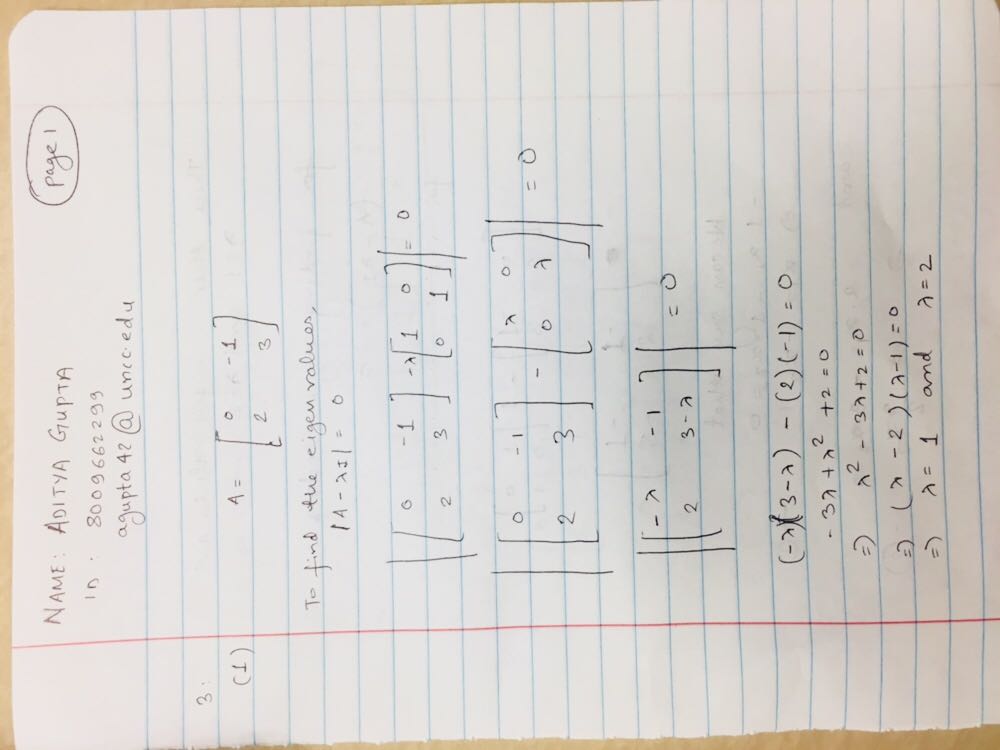 Page 1
NAME: ADITYA GUPTA
ID: 800966 2299
agupta42@uncc.edu
3.
(1) A = [ 0 -1
2 3 ]
To find the eigen values,
|A - λI| = 0
| [ 0 -1
2 3 ] - λ [ 1 0
0 1 ] | = 0
| [ 0 -1
2 3 ] - [ λ 0
0 λ ] | = 0
| [ -λ -1
2 3-λ ] | = 0
(-λ)(3-λ) - (2)(-1) = 0
-3λ + λ² + 2 = 0
=) λ² - 3λ + 2 = 0
=) (λ - 2)(λ - 1) = 0
=) λ = 1 and λ = 2